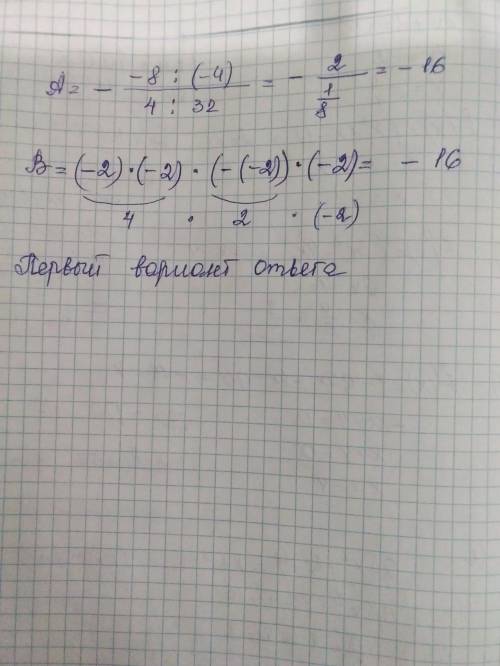 A = - \frac{-8 : (-4)}{4 : 32} = - \frac{2}{\frac{1}{8}} = - 16
B = (-2) · (-2) · (-(-2)) · (-2) = - 16
4 · 2 · (-2)
Первый вариант ответа